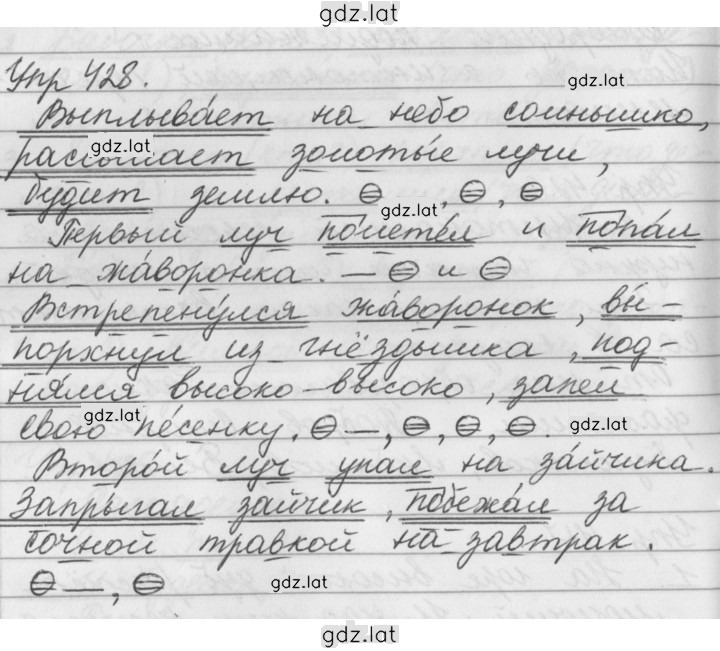 gdz.lat
Упр 428.
gdz.lat
Выплывает на небо солнышко,
рассылает золотые лучи,
gdz.lat
будит землю. ⊖ , ⊖ , ⊖
gdz.lat
Первый луч полетел и попал
на жаворонка. — ⊖ и ⊖
Встрепенулся жаворонок, вы-
порхнул из гнёздышка, под-
нялся высоко-высоко, запел
gdz.lat
свою песенку. ⊖ —, ⊖, ⊖, ⊖.
gdz.lat
Второй луч упал на зайчика.
Запрыгал зайчик, побежал за
сочной травкой на завтрак.
⊖ —, ⊖
gdz.lat
gdz.lat